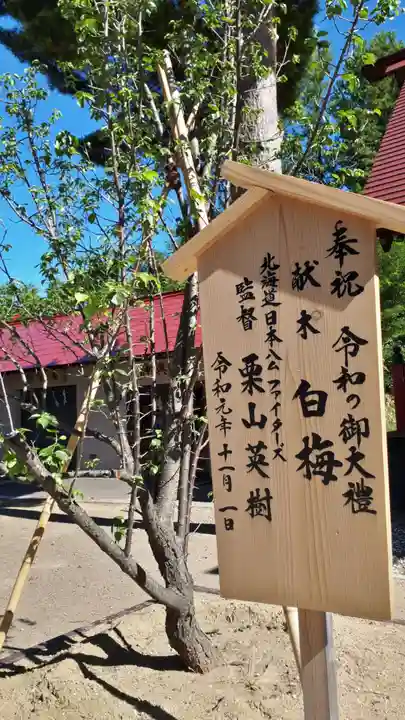 奉祝 令和の御大禮
献木 白梅
北海道日本ハムファイターズ
監督 栗山英樹
令和元年十一月一日